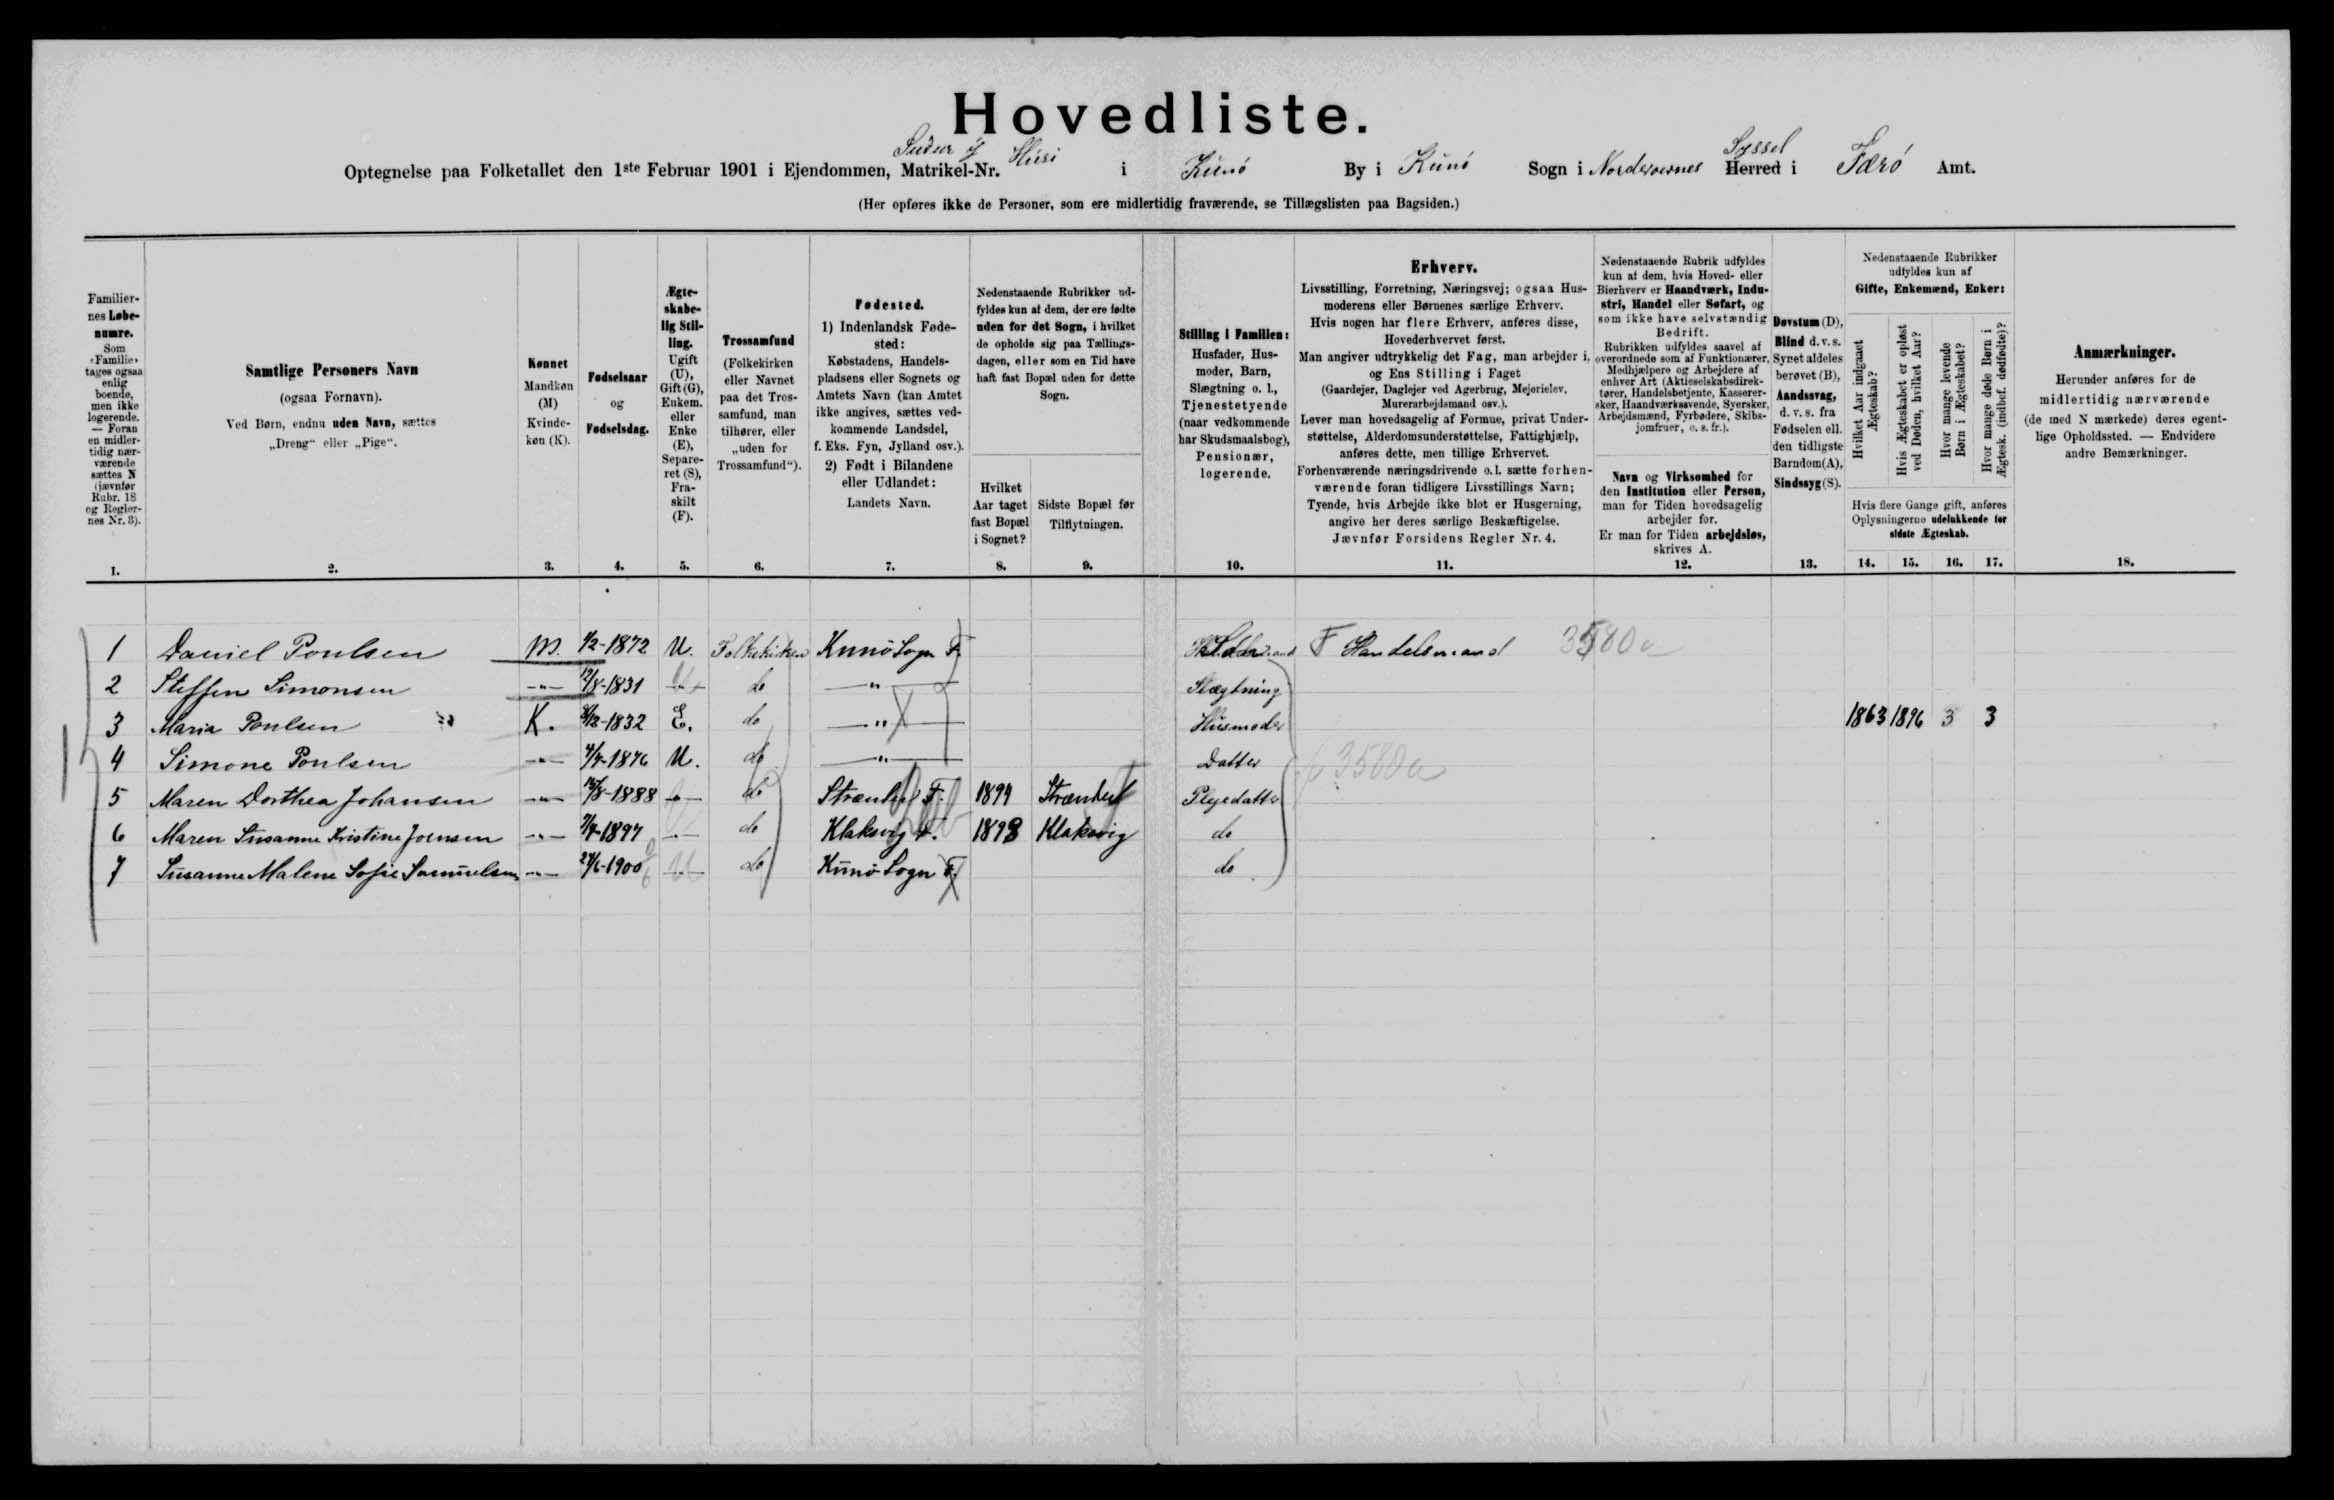 Hovedliste.
Optegnelse paa Folketallet den 1ste Februar 1901 i Ejendommen, Matrikel-Nr. Sudur i Húsi i Kunö By i Kunö Sogn i Norderoernes Herred Syssel i Færö Amt.
(Her opføres ikke de Personer, som ere midlertidig fraværende, se Tillægslisten paa Bagsiden.)
Familiernes Løbenumre. Som «Familie» tages ogsaa enlig boende, men ikke logerende. — Foran en midlertidig nærværende sættes N (jævnfør Rubr. 18 og Reglernes Nr. 3).
Samtlige Personers Navn
(ogsaa Fornavn).
Ved Børn, endnu uden Navn, sættes
„Dreng“ eller „Pige“.
Kønnet
Mandkøn (M)
Kvindekøn (K).
Fødselsaar
og
Fødselsdag.
Ægteskabelig Stilling.
Ugift (U), Gift (G), Enkem. eller Enke (E), Separeret (S), Fraskilt (F).
Trossamfund
(Folkekirken eller Navnet paa det Trossamfund, man tilhører, eller „uden for Trossamfund“).
Fødested.
1) Indenlandsk Fødested:
Købstadens, Handelspladsens eller Sognets og Amtets Navn (kan Amtet ikke angives, sættes vedkommende Landsdel, f. Eks. Fyn, Jylland osv.).
2) Født i Bilandene eller Udlandet:
Landets Navn.
Nedenstaaende Rubrikker udfyldes kun af dem, der ere fødte uden for det Sogn, i hvilket de opholde sig paa Tællingsdagen, eller som en Tid have haft fast Bopæl uden for dette Sogn.
Hvilket Aar taget fast Bopæl i Sognet?
Sidste Bopæl før Tilflytningen.
Stilling i Familien:
Husfader, Husmoder, Barn, Slægtning o. l., Tjenestetyende (naar vedkommende har Skudsmaalsbog), Pensionær, logerende.
Erhverv.
Livsstilling, Forretning, Næringsvej; ogsaa Husmoderens eller Børnenes særlige Erhverv.
Hvis nogen har flere Erhverv, anføres disse, Hovederhvervet først.
Man angiver udtrykkelig det Fag, man arbejder i, og Ens Stilling i Faget
(Gaardejer, Daglejer ved Agerbrug, Mejerielev, Murerarbejdsmand osv.).
Lever man hovedsagelig af Formue, privat Understøttelse, Alderdomsunderstøttelse, Fattighjælp, anføres dette, men tillige Erhvervet.
Forhenværende næringsdrivende o. l. sætte forhenværende foran tidligere Livsstillings Navn;
Tyende, hvis Arbejde ikke blot er Husgerning, angive her deres særlige Beskæftigelse.
Jævnfør Forsidens Regler Nr. 4.
Nedenstaaende Rubrik udfyldes kun af dem, hvis Hoved- eller Bierhverv er Haandværk, Industri, Handel eller Søfart, og som ikke have selvstændig Bedrift.
Rubrikken udfyldes saavel af overordnede som af Funktionærer, Medhjælpere og Arbejdere af enhver Art (Aktieselskabsdirektører, Handelsbetjente, Kasserersker, Haandværkssvende, Syersker, Arbejdsmænd, Fyrbødere, Skibsjomfruer, o. s. fr.).
Navn og Virksomhed for den Institution eller Person, man for Tiden hovedsagelig arbejder for.
Er man for Tiden arbejdsløs, skrives A.
Døvstum (D), Blind d. v. s. Synet aldeles berøvet (B), Aandssvag, d. v. s. fra Fødselen ell. den tidligste Barndom (A), Sindssyg (S).
Nedenstaaende Rubrikker udfyldes kun af
Gifte, Enkemænd, Enker:
Hvilket Aar indgaaet Ægteskab?
Hvis Ægteskabet er opløst ved Døden, hvilket Aar?
Hvor mange levende Børn i Ægteskabet?
Hvor mange døde Børn i Ægtesk. (indbef. dødfødte)?
Hvis flere Gange gift, anføres Oplysningerne udelukkende for sidste Ægteskab.
Anmærkninger.
Herunder anføres for de midlertidig nærværende (de med N mærkede) deres egentlige Opholdssted. — Endvidere andre Bemærkninger.
1. 2. 3. 4. 5. 6. 7. 8. 9. 10. 11. 12. 13. 14. 15. 16. 17. 18.
1 Daniel Poulsen M. 1/2-1872 U. Folkekirken Kunö Sogn F. F Handelsmand 3580a
2 Steffen Simonsen -"- 12/8-1831 -"- do -"- Slægtning
3 Maria Poulsen K. 1832 E. do -"- Húsmoder 1863 1896 3 3
4 Simone Poulsen -"- 4/7-1876 U. do -"- Datter 3580a
5 Maren Dorthea Johansen -"- 15/8-1888 -"- do F. 1894 Plejedatter
6 Maren Susanne Kristine Joensen -"- 7/7-1897 -"- do Klaksvig F. 1898 Klaksvig do
7 Susanne Malene Sofie Samuelsen -"- 24/6-1900 -"- do Kunö Sogn F. do